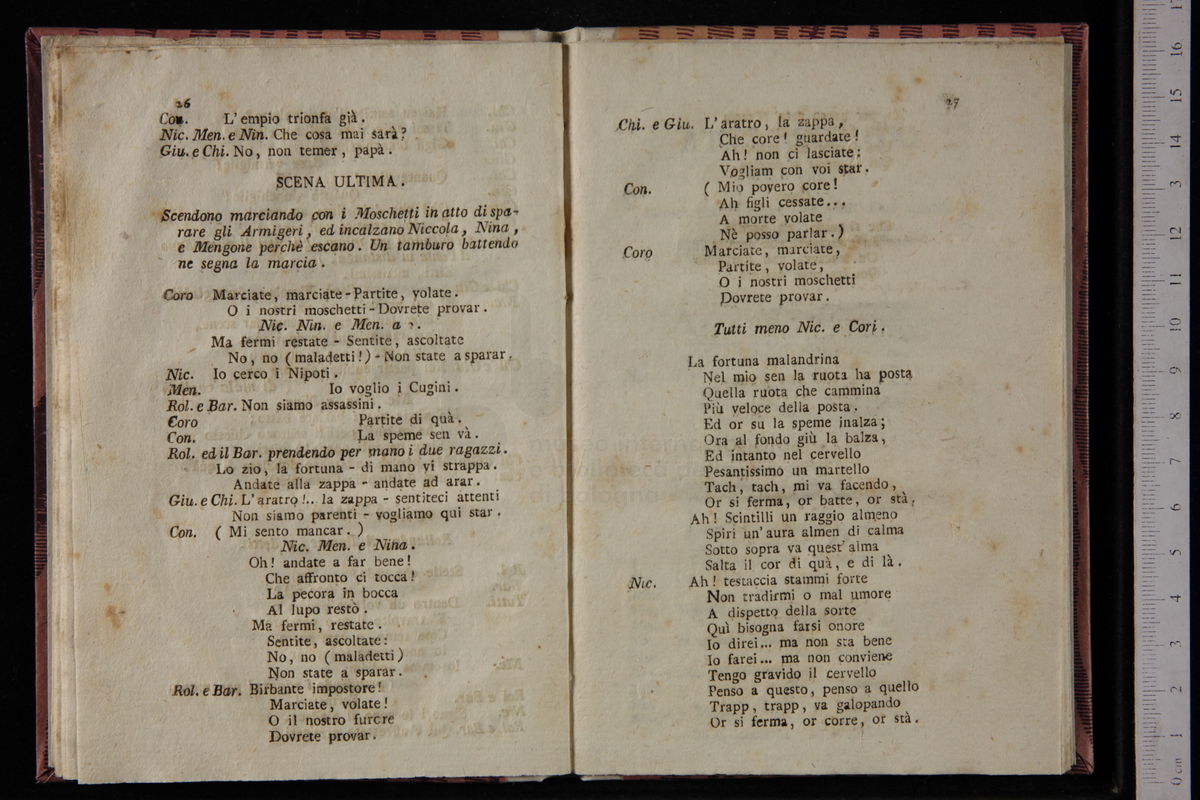 26
Con. L'empio trionfa già.
Nic. Men. e Nin. Che cosa mai sarà?
Giu. e Chi. No, non temer, papà.
SCENA ULTIMA.
Scendono marciando con i Moschetti in atto di spa-
rare gli Armigeri, ed incalzano Niccola, Nina,
e Mengone perchè escano. Un tamburo battendo
ne segna la marcia.
Coro Marciate, marciate - Partite, volate.
O i nostri moschetti - Dovrete provar.
Nic. Nin. e Men. a
Ma fermi restate - Sentite, ascoltate
No, no (maladetti!) - Non state a sparar.
Nic. Io cerco i Nipoti.
Men. Io voglio i Cugini.
Rol. e Bar. Non siamo assassini.
Coro Partite di quà.
Con. La speme sen và.
Rol. ed il Bar. prendendo per mano i due ragazzi.
Lo zio, la fortuna - di mano vi strappa.
Andate alla zappa - andate ad arar.
Giu. e Chi. L'aratro!.. la zappa - sentiteci attenti
Non siamo parenti - vogliamo qui star.
Con. (Mi sento mancar.)
Nic. Men. e Nina.
Oh! andate a far bene!
Che affronto ci tocca!
La pecora in bocca
Al lupo restò.
Ma fermi, restate.
Sentite, ascoltate:
No, no (maladetti)
Non state a sparar.
Rol. e Bar. Birbante impostore!
Marciate, volate!
O il nostro furore
Dovrete provar.
27
Chi. e Giu. L'aratro, la zappa,
Che core! guardate!
Ah! non ci lasciate:
Vogliam con voi star.
Con. (Mio povero core!
Ah figli cessate...
A morte volate
Nè posso parlar.)
Coro Marciate, marciate,
Partite, volate,
O i nostri moschetti
Dovrete provar.
Tutti meno Nic. e Cori.
La fortuna malandrina
Nel mio sen la ruota ha posta
Quella ruota che cammina
Più veloce della posta.
Ed or su la speme inalza;
Ora al fondo giù la balza,
Ed intanto nel cervello
Pesantissimo un martello
Tach, tach, mi va facendo,
Or si ferma, or batte, or stà.
Ah! Scintilli un raggio almeno
Spiri un'aura almen di calma
Sotto sopra va quest'alma
Salta il cor di quà, e di là.
Nic. Ah! testaccia stammi forte
Non tradirmi o mal umore
A dispetto della sorte
Quì bisogna farsi onore
Io direi... ma non sta bene
Io farei... ma non conviene
Tengo gravido il cervello
Penso a questo, penso a quello
Trapp, trapp, va galopando
Or si ferma, or corre, or stà.